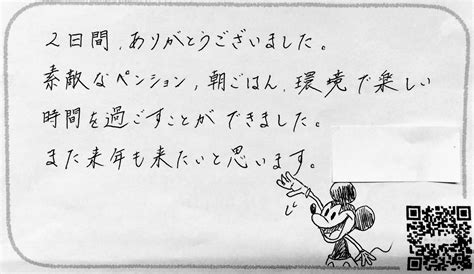 2日間、ありがとうございました。
素敵なペンション、朝ごはん、環境で楽しい
時間を過ごすことができました。
また来年も来たいと思います。